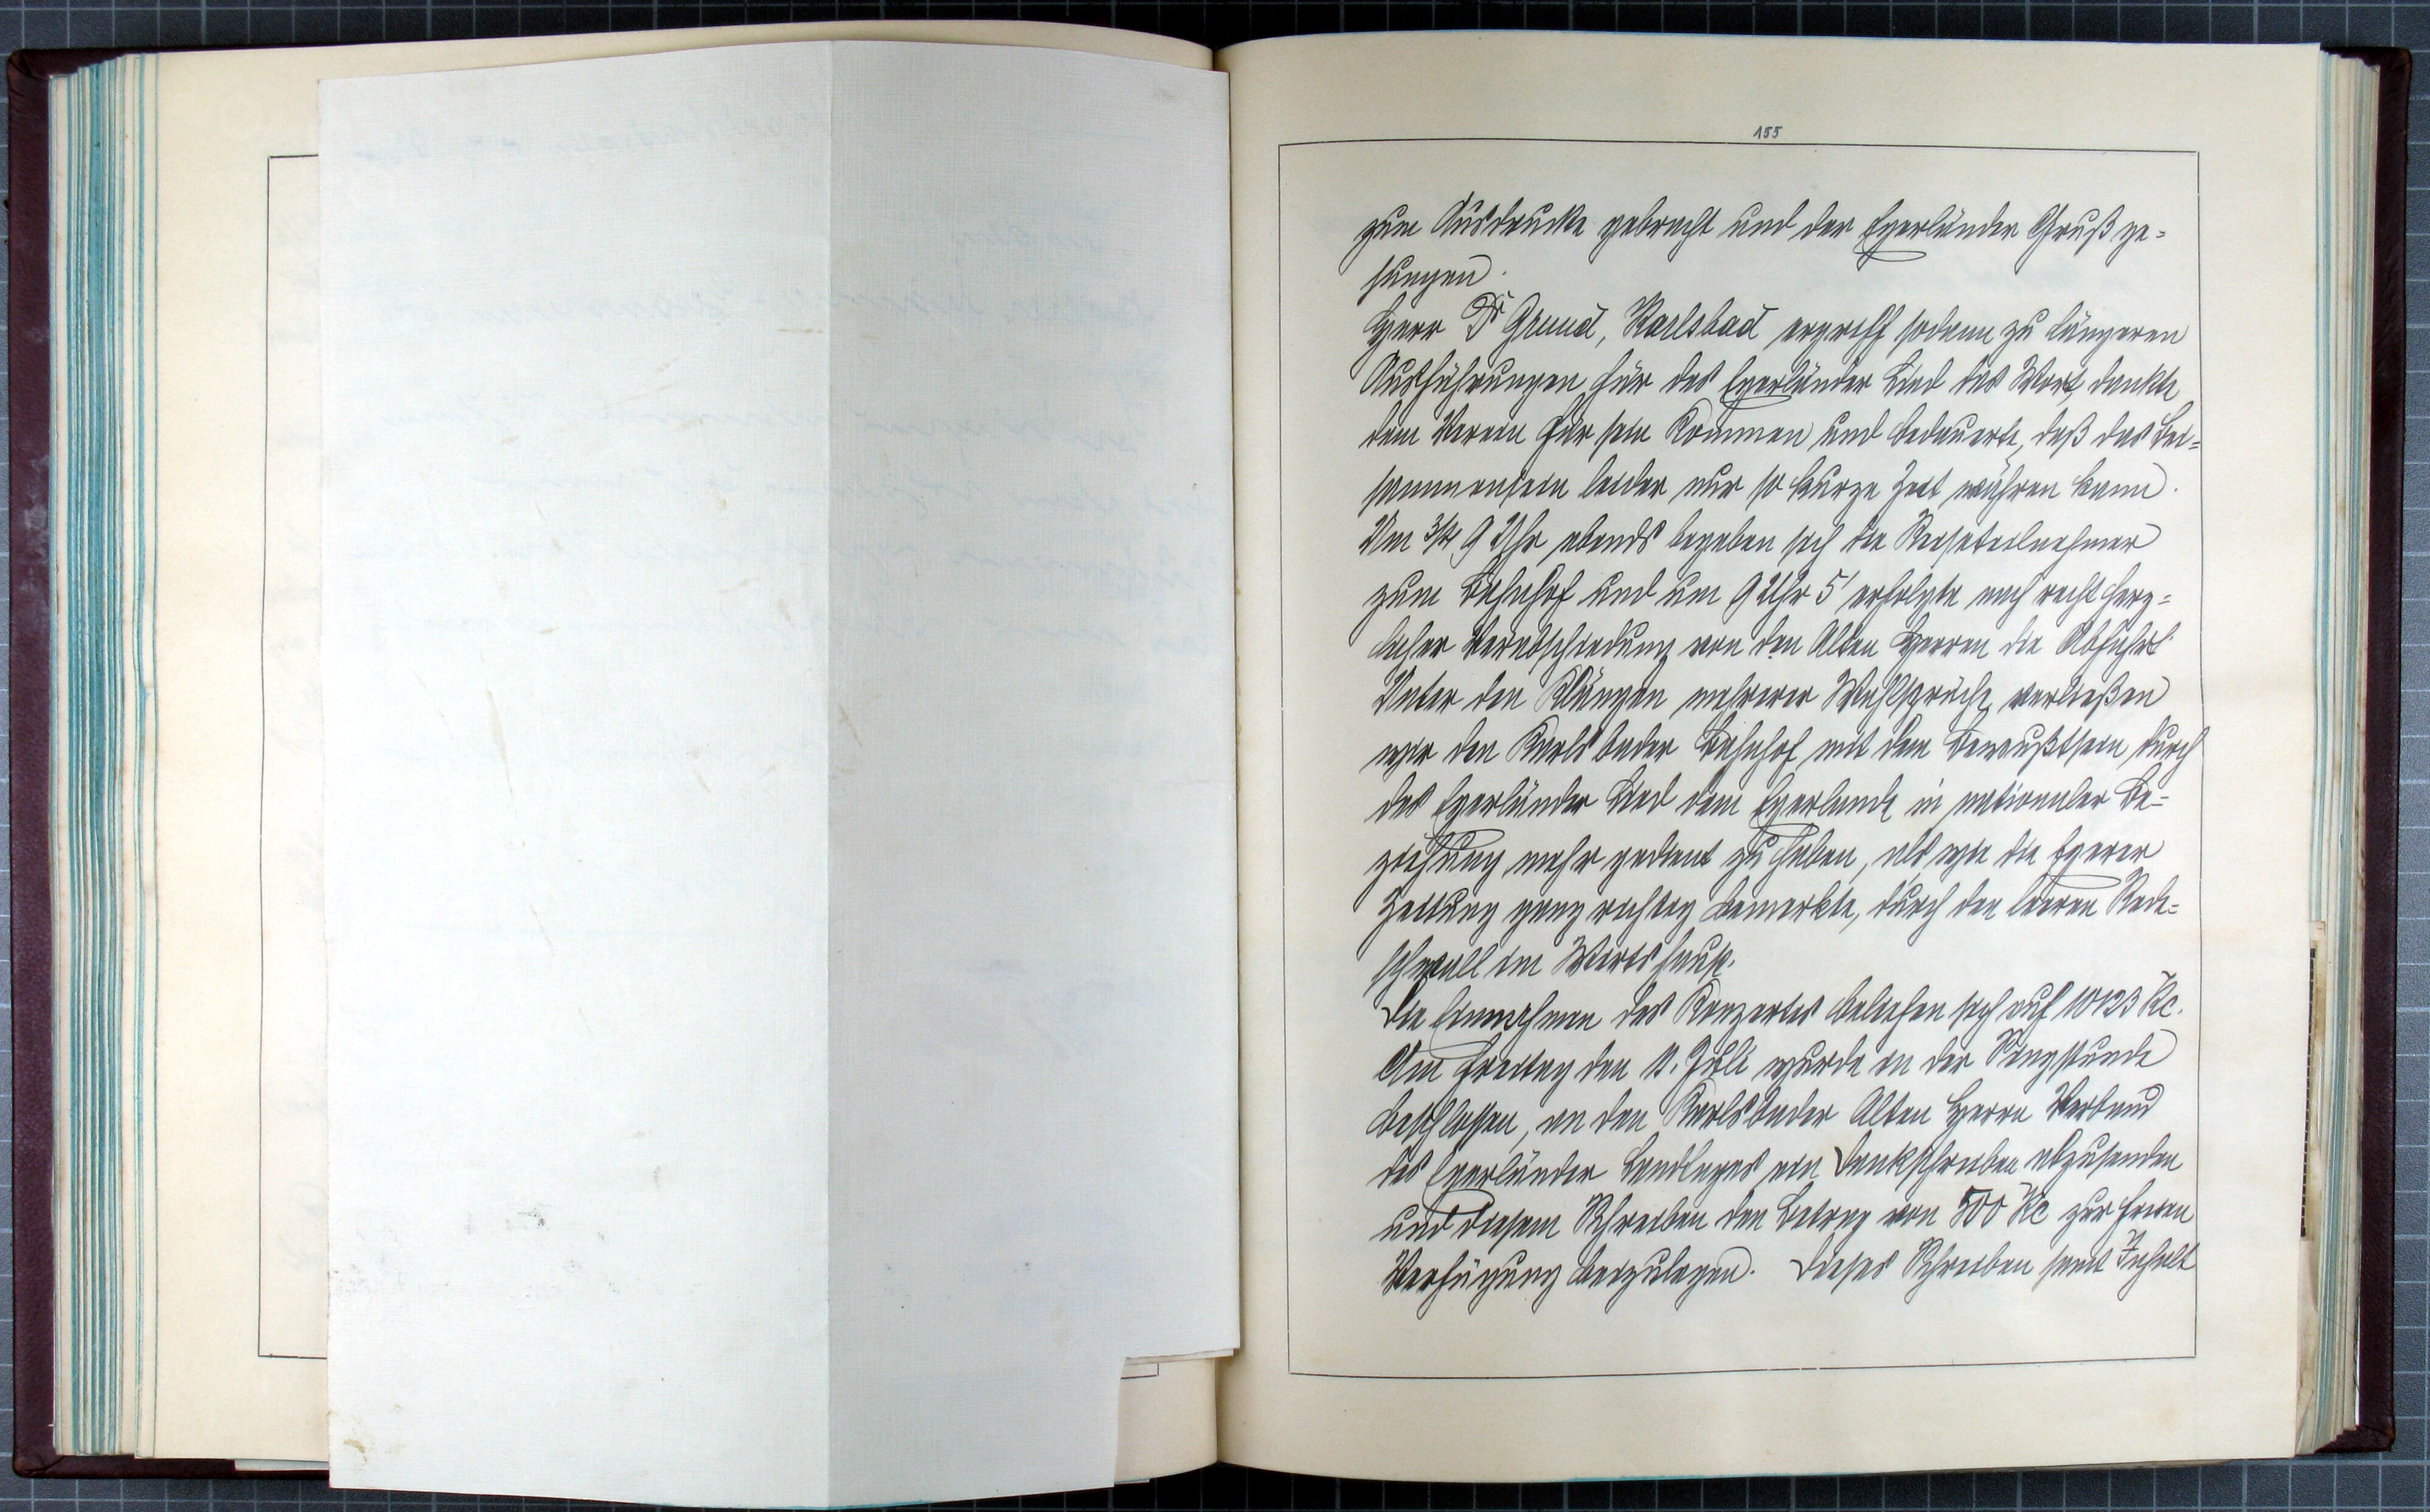 155
zum Ausdrucke gebracht und der Egerländer Gruß ge=
sungen.
Herr Dr Grund, Karlsbad ergriff sodann zu längeren
Ausführungen für das Egerländer Lied das Wort, dankte
dem Verein für sein Kommen und bedauerte, daß das Bei=
sammensein leider nur so kurze Zeit währen kann.
Um 3/4 9 Uhr abends begaben sich die Reiseteilnehmer
zum Bahnhof und um 9 Uhr 5' erfolgte nach recht herz=
licher Verabschiedung von den Alten Herren die Abfahrt.
Unter den Klängen mehrerer Wahlsprüche verließen
wir den Karlsbader Bahnhof mit dem Bewußtsein durch
das Egerländer Lied dem Egerlande in nationaler Be=
ziehung mehr gedient zu haben, als wie die Egerer
Zeitung ganz richtig bemerkte, durch den leeren Rede=
schwall im Wirtshause.
Die Einnahmen des Konzertes beliefen sich auf 10123 Kc.
Am Freitag den 11. Juli wurde in der Singstunde
beschlossen, an den Karlsbader Alten Herrn Verband
des Egerländer Landtages ein Dankschreiben abzusenden
und diesem Schreiben den Betrag von 500 Kc zur freien
Verfügung beizulegen. Dieses Schreiben samt Inhalt